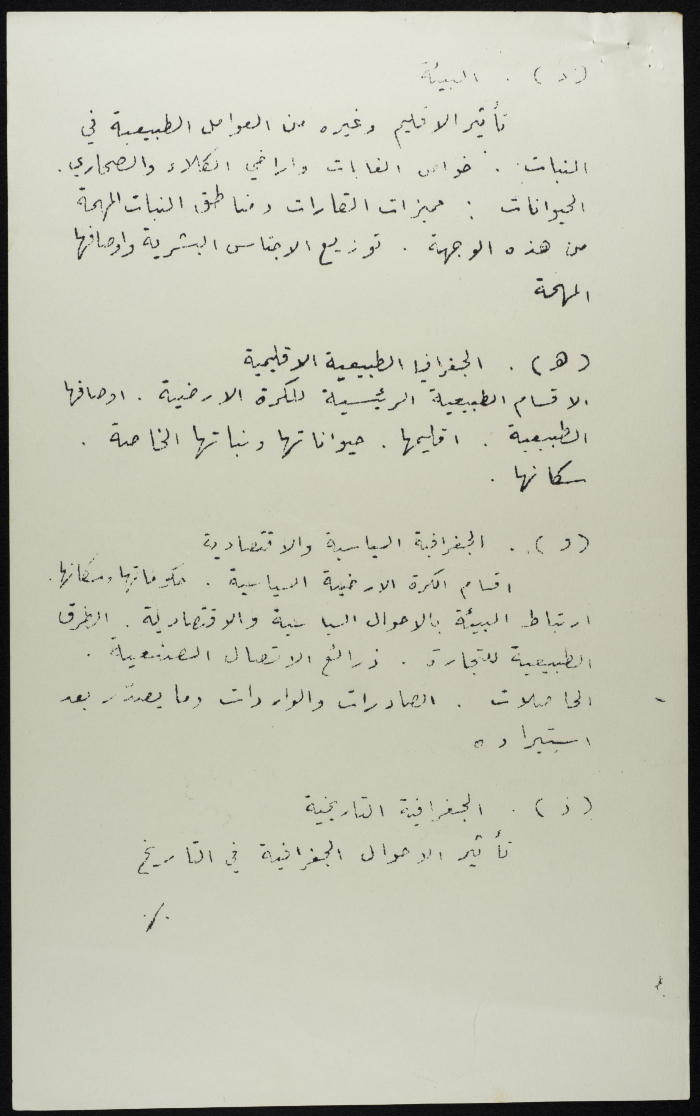 (د) . البيئة
تأثير الاقليم وغيره من العوامل الطبيعية في
النبات . خواص الغابات واراضي الكلاء والصحاري .
الحيوانات : مميزات القارات ومناطق النبات المهمة
من هذه الوجهة . توزيع الاجناس البشرية واوصافها
المهمة
(ه) . الجغرافيا الطبيعية الاقليمية
الاقسام الطبيعية الرئيسية للكرة الارضية . اوصافها
الطبيعية . اقليمها . حيواناتها ونباتها الخاصة .
سكانها .
(و) . الجغرافية السياسية والاقتصادية
اقسام الكرة الارضية السياسية . حكوماتها وسكانها .
ارتباط البيئة بالاحوال السياسية والاقتصادية . الطرق
الطبيعية للتجارة . ذرائع الاتصال الصنعية .
الحاصلات . الصادرات والواردات وما يصدّر بعد
استيراده
(ز) . الجغرافية التاريخية
تأثير الاحوال الجغرافية في التاريخ
./.